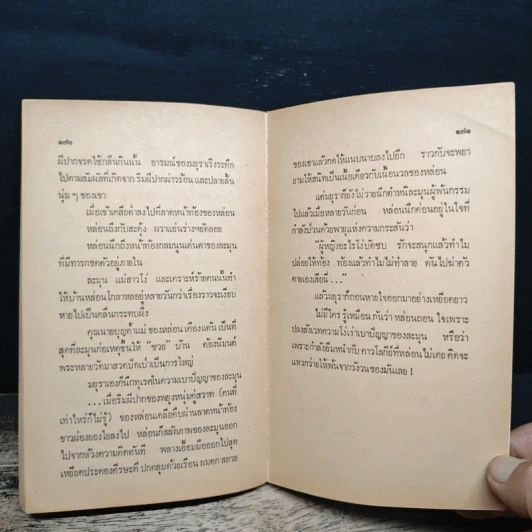 ๑๗๒
ผีปากจรดไซ้กลืนกินนั้น อารมณ์ของมธุราเริงระทึก
ไปตามสัมผัสที่เกิดจาก ริมฝีปากผ่าวร้อน และปลายลิ้น
นุ่ม ๆ ของเขา
เมื่อเข้าเคลียต่ำลงไปที่ลาดหน้าท้องของหล่อน
หล่อนถึงกับสะดุ้ง ผวาแอ่นร่างฃยดลอย
หล่อนนึกถึงหน้าท้องกลมนูนเด่นคาของละมุน
ที่มีทารกขดตัวอยู่ภายใน
ละมุน แม่สาวโง่ และเคราะห์ร้ายคนนั้นทำ
ให้บ้านหล่อนโกลาหลอยู่หลายวันกว่าเรื่องราวจะเงียบ
หายไปเป็นคลื่นกระทบฝั่ง
คุณนายบุญค้ำแม่ ของหล่อน เคืองแค้น เป็นที่
สุดที่ละมุนก่อเหตุขึ้นให้ "ซวย" บ้าน ต้องนิมนต์
พระหลายวัดมาสวดปัดเป่าเป็นการใหญ่
มธุราเองก็นึกทุเรศในความเบาปัญญาของละมุน
...เมื่อริมฝีปากของพยุงหนุ่มคู่สวาท (คนที่
เท่าไหร่ก็ไม่รู้) ของหล่อนเคลื่อคืบผ่านลาดหน้าท้อง
ขาวผ่องยองใยลงไป หล่อนก็สลัดภาพของละมุนออก
ไปจากห้วงความคิดทันที พลางเอื้อมมือออกไปสุด
เหยียดประคองศีรษะที่ ปกคลุมด้วยเรือน ผมดก สลวย
๑๗๓
ของเขาแล้วกดให้แนบนาบลงไปอีก ราวกับจะพยา
ยามให้สนิทเป็นเนื้อเดียวกับเนื้อนวลของหล่อน
แต่มธุราก็ยังไม่วายนึกตำหนิละมุนผู้พ้นกรรม
ไปแล้วเมื่อหลายวันก่อน หล่อนนึกค่อนอยู่ในใจที่
กำลังป่วนด้วยพายุแห่งความกระสันว่า
"ผู้หญิงอะไรโง่บัดซบ รักจะสนุกแล้วทำไม
ปล่อยให้ท้อง ท้องแล้วทำไมไม่ทำลาย ดันไปฆ่าตัว
ตายเองเสียนี่ ..."
แล้วมธุราก็ถอนหายใจออกมาอย่างเหยียดยาว
ไม่มีใคร รู้เหมือน กันว่า หล่อนถอน ใจเพราะ
ปลงสังเวทความโง่เง่าเบาปัญญาของละมุน หรือว่า
เพราะกำลังอิ่มหน้ากับ ดาวโลกีย์ที่หล่อนไม่เคย คิดจะ
แหวกว่ายให้พ้นจากวังวนของมันเลย !